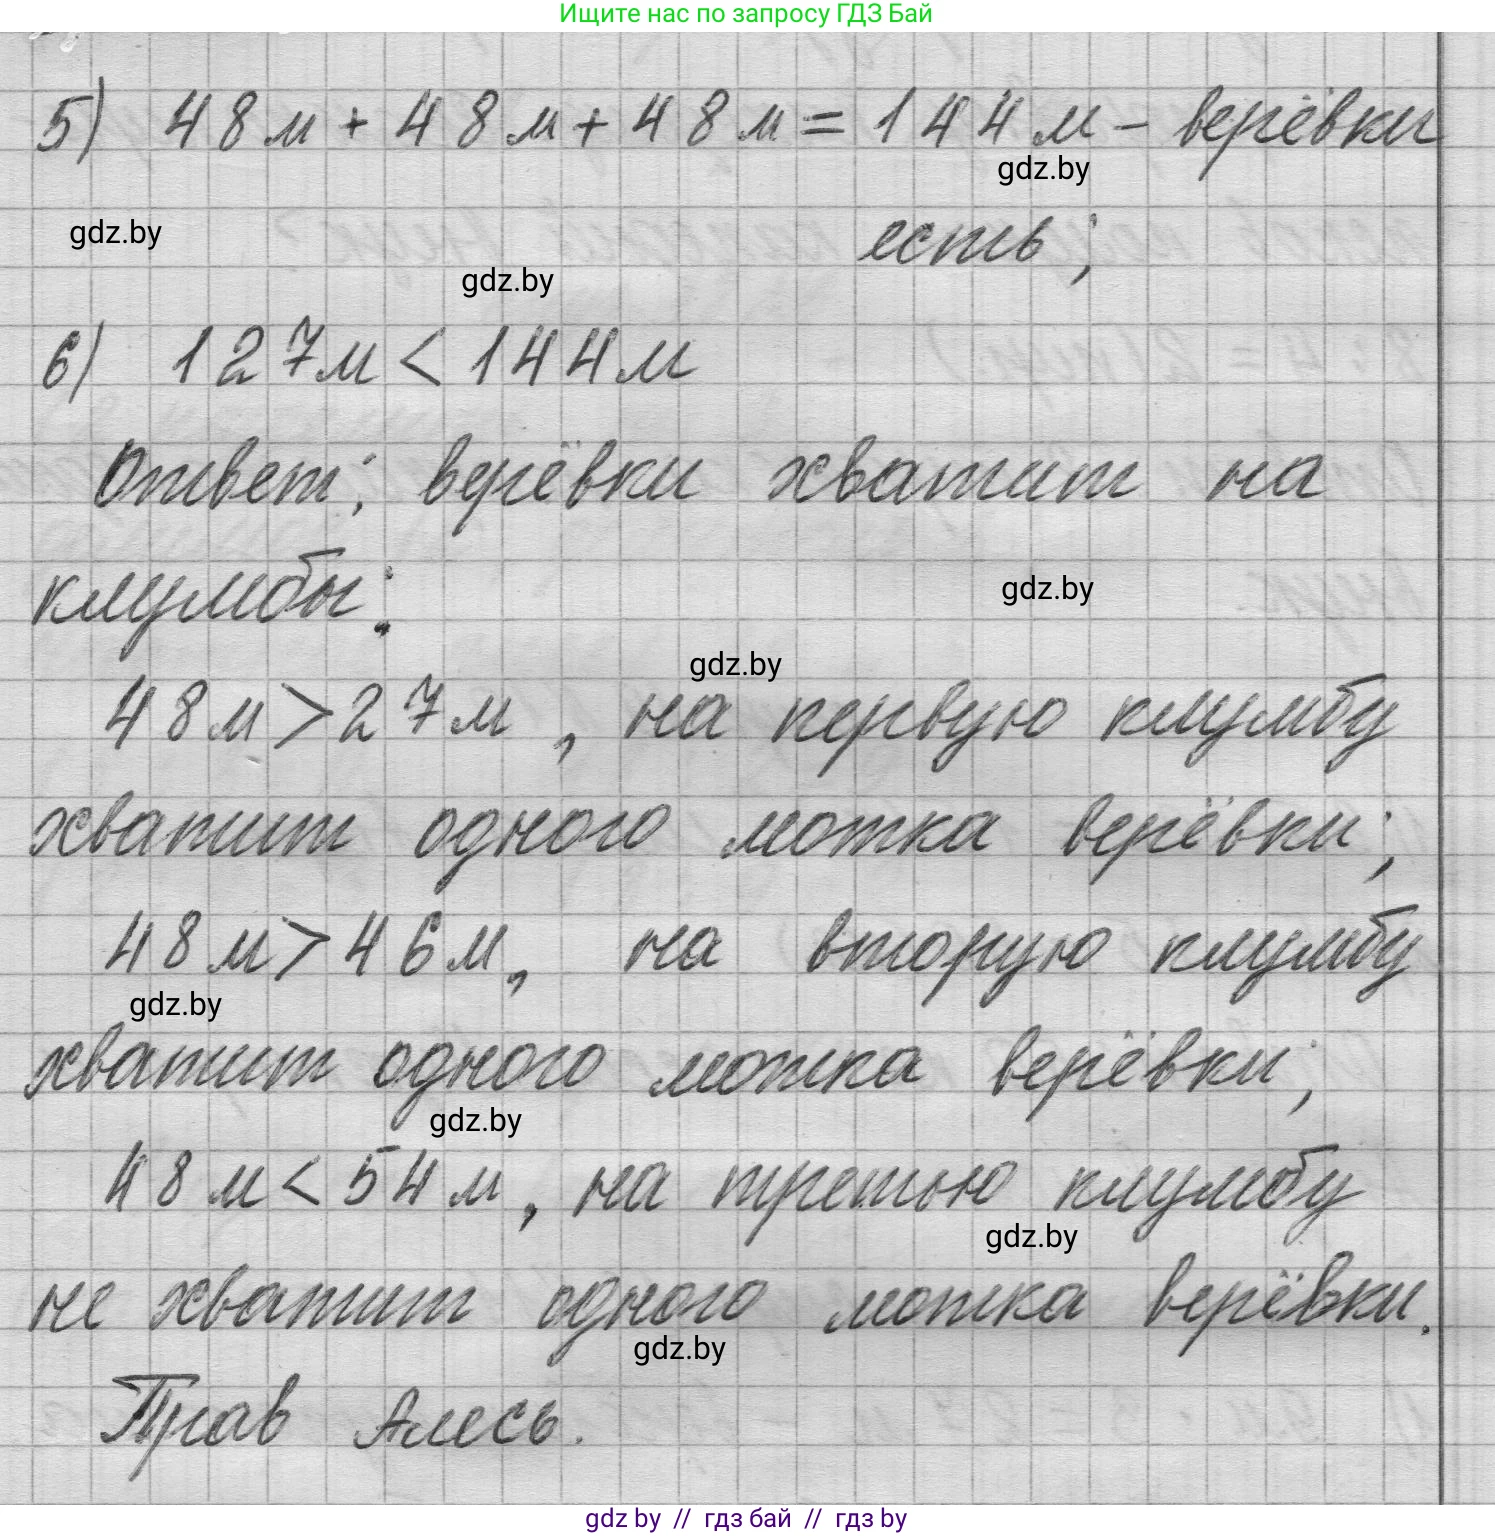 Ищите нас по запросу ГДЗ Бай
5) 48м + 48м + 48м = 144м – верёвки
gdz.by
gdz.by
есть;
gdz.by
6) 127м < 144м
Ответ: верёвки хватит на
клумбы:
gdz.by
gdz.by
48м > 27м, на первую клумбу
хватит одного мотка верёвки;
48м > 46м, на вторую клумбу
gdz.by
хватит одного мотка верёвки;
gdz.by
48м < 54м, на третью клумбу
gdz.by
не хватит одного мотка верёвки.
gdz.by
Прав Алесь.
gdz by // гдз бай // гдз by